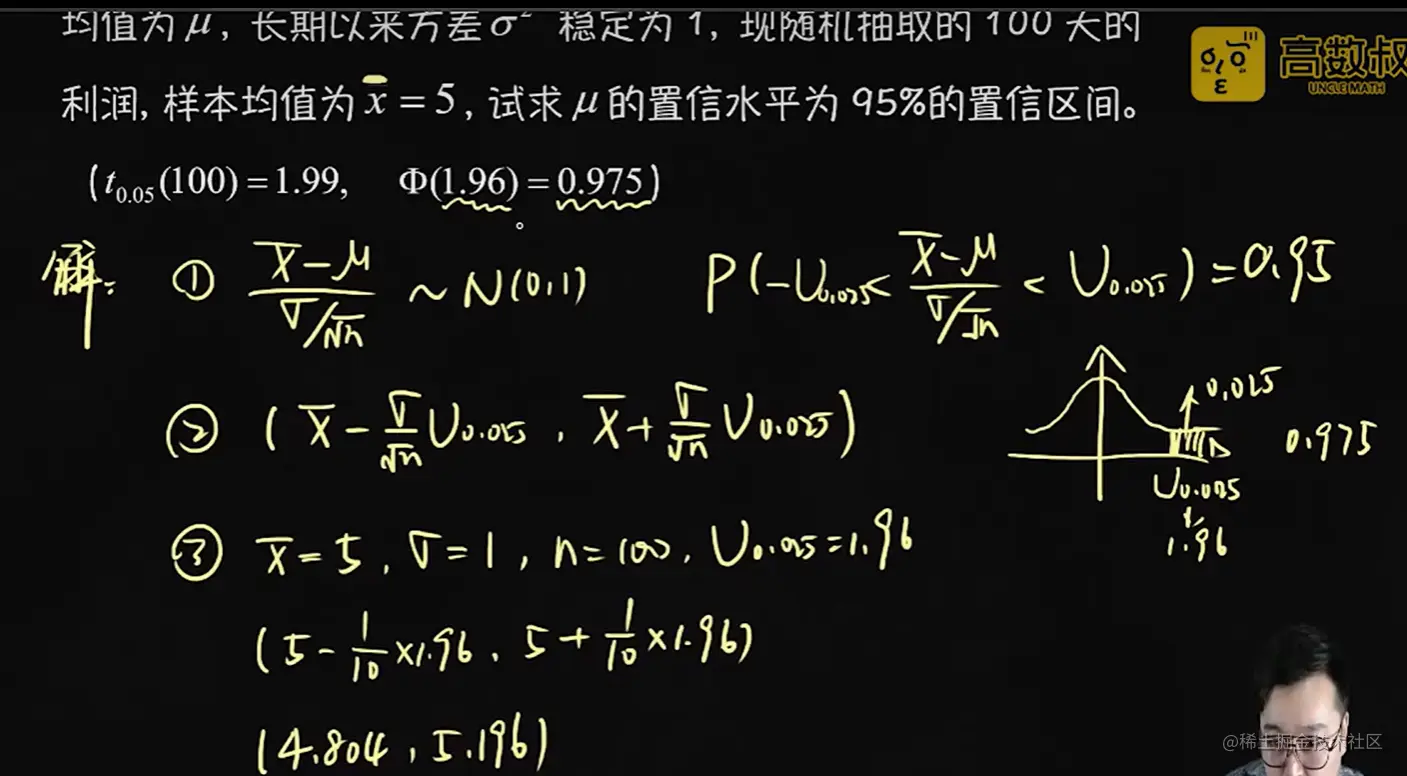 均值为 μ, 长期以来方差 σ² 稳定为 1, 现随机抽取的 100 天的
利润, 样本均值为 x̄ = 5, 试求 μ 的置信水平为 95%的置信区间。
(t₀.₀₅(100) = 1.99, Φ(1.96) = 0.975)
高数叔
UNCLE MATH
解: ① (X̄-μ)/(σ/√n) ~ N(0,1) P(-U₀.₀₂₅< (X̄-μ)/(σ/√n) < U₀.₀₂₅) = 0.95
② (X̄ - σ/√n U₀.₀₂₅, X̄ + σ/√n U₀.₀₂₅)
0.025
0.975
U₀.₀₂₅
1.96
③ X̄ = 5, σ = 1, n = 100, U₀.₀₂₅ = 1.96
(5 - 1/10 × 1.96, 5 + 1/10 × 1.96)
(4.804, 5.196)
@稀土掘金技术社区